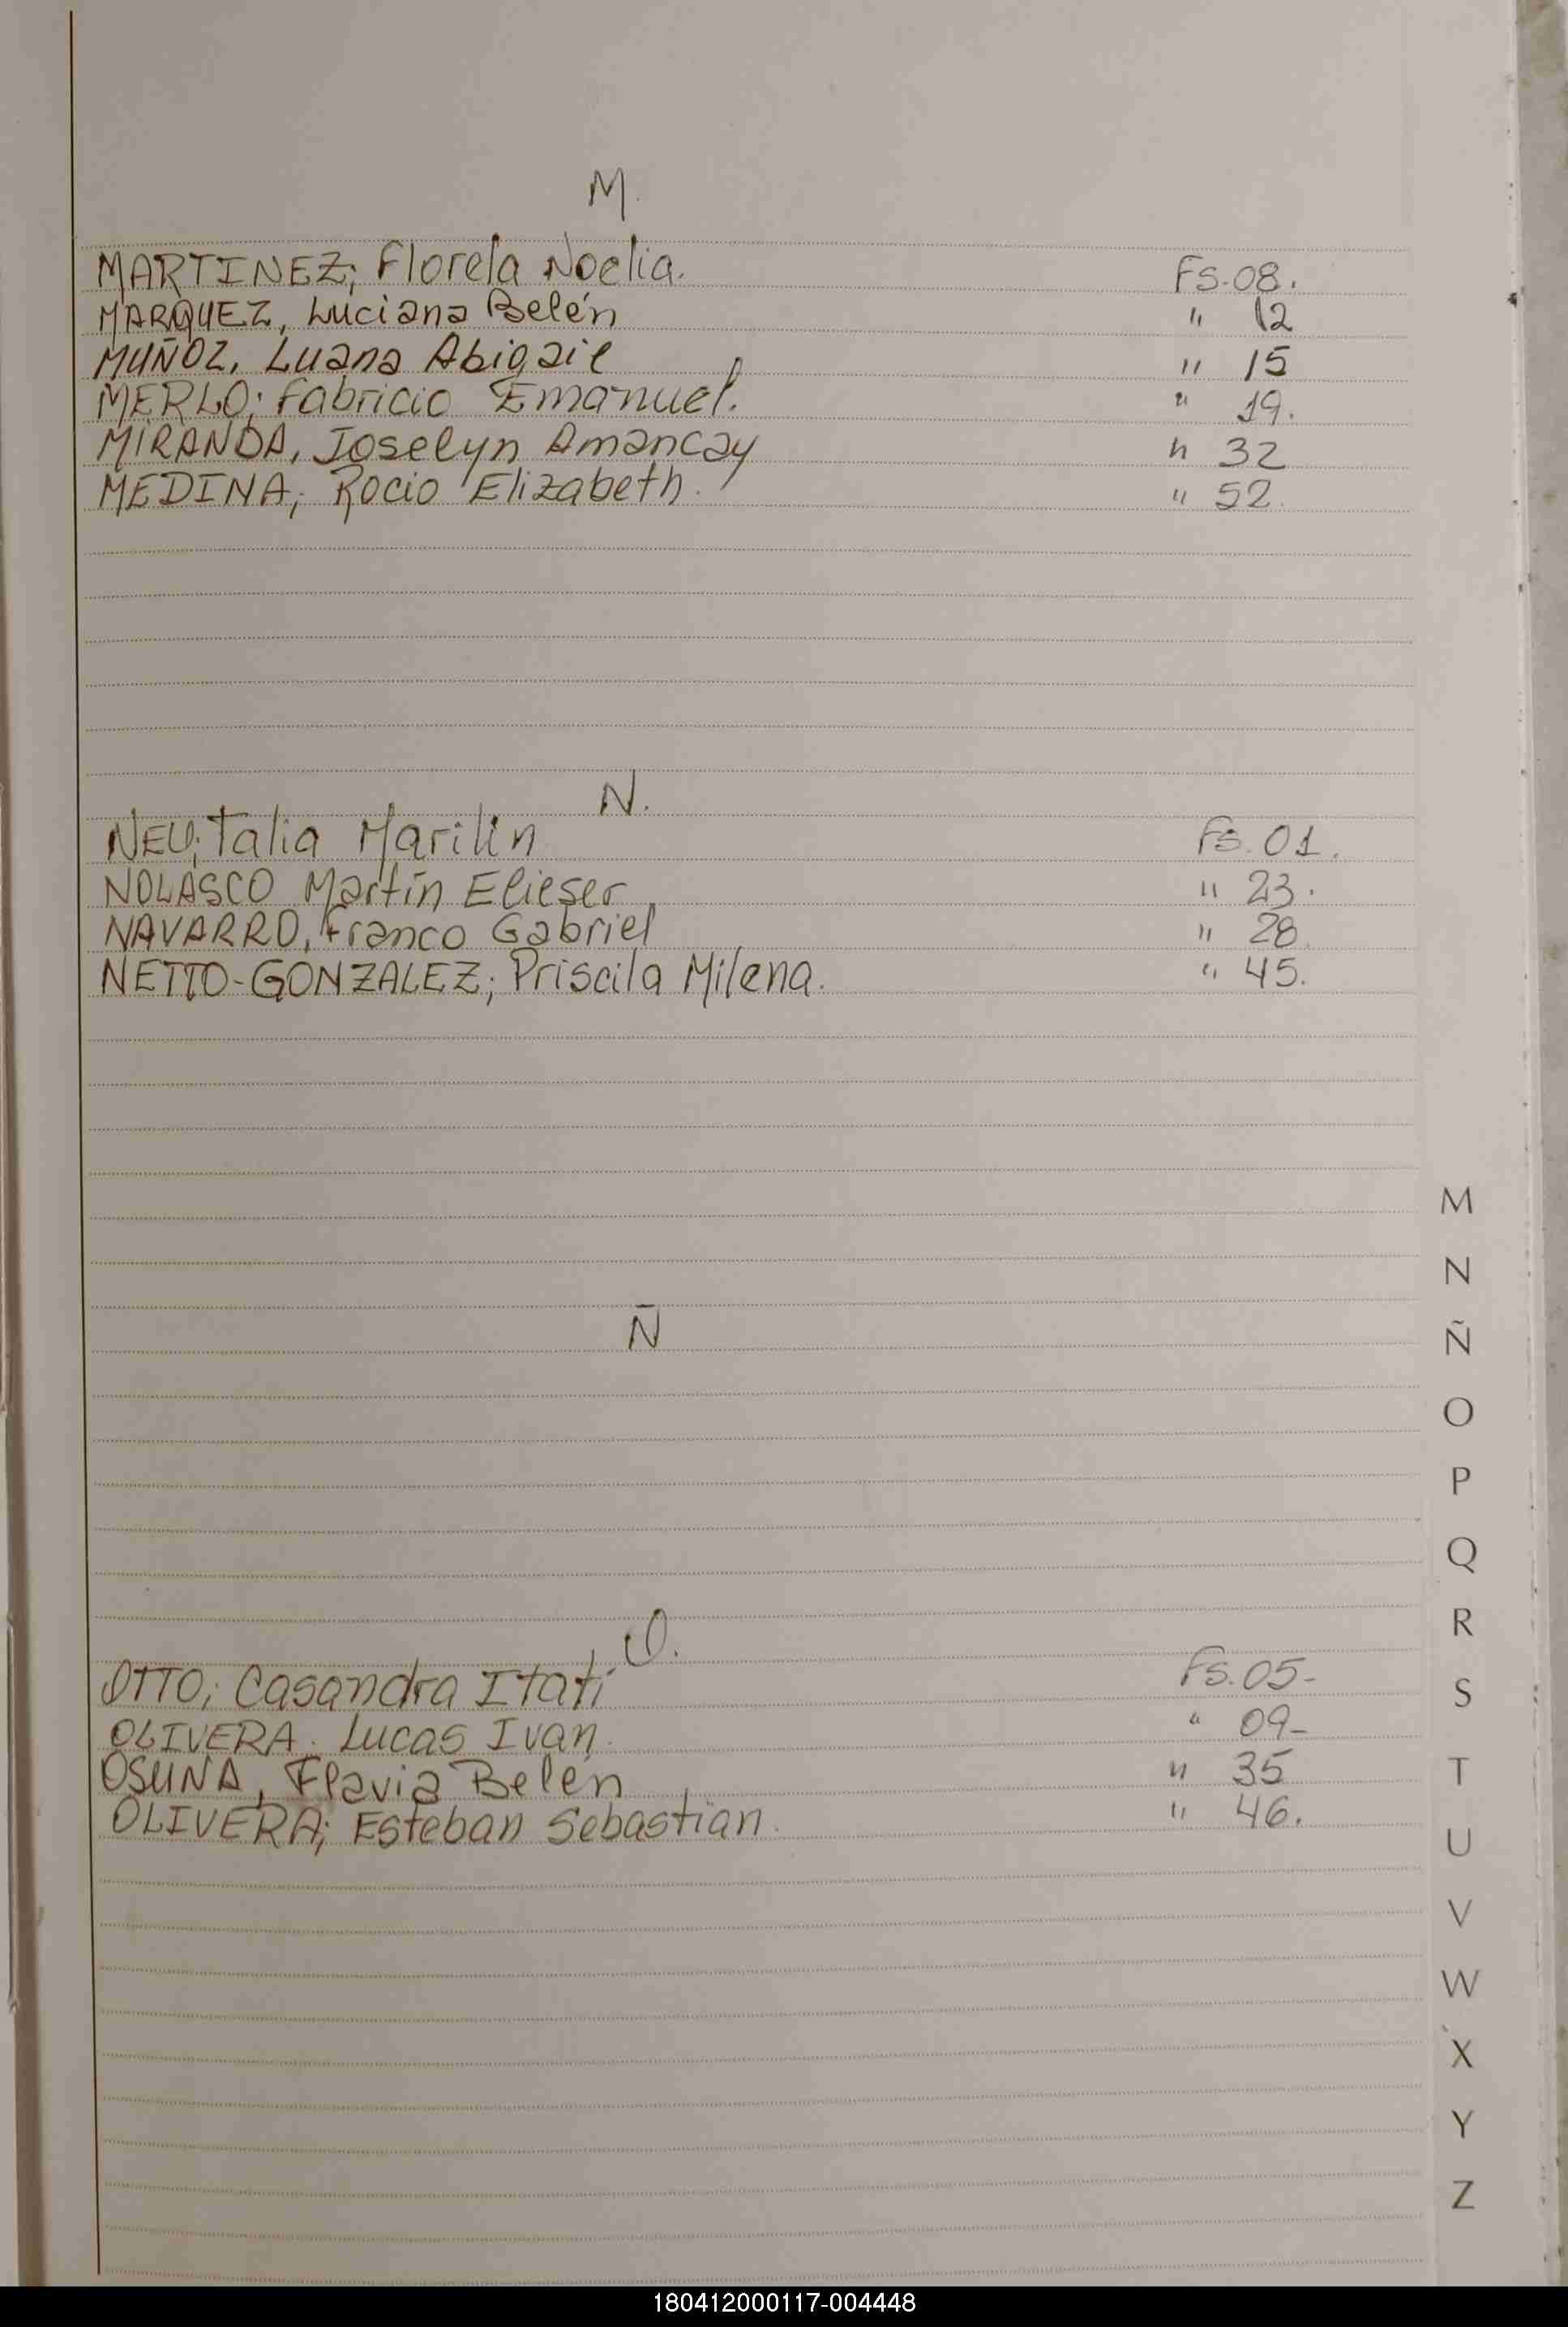 M.
MARTINEZ; Florela Noelia. Fs.08.
MARQUEZ, Luciana Belén " 12
MUÑOZ, Luana Abigail " 15
MERLO; Fabricio Emanuel. " 19.
MIRANDA, Joselyn Amancay " 32
MEDINA; Rocio Elizabeth. " 52.
N.
NEU; Talia Marilin Fs. 01.
NOLASCO Martín Elieser " 23.
NAVARRO, Franco Gabriel " 28
NETTO-GONZALEZ; Priscila Milena. " 45.
Ñ
O.
OTTO; Casandra Itatí Fs.05-
OLIVERA; Lucas Ivan. " 09-
OSUNA, Flavia Belen " 35
OLIVERA; Esteban Sebastian. " 46.
M
N
Ñ
O
P
Q
R
S
T
U
V
W
X
Y
Z
180412000117-004448